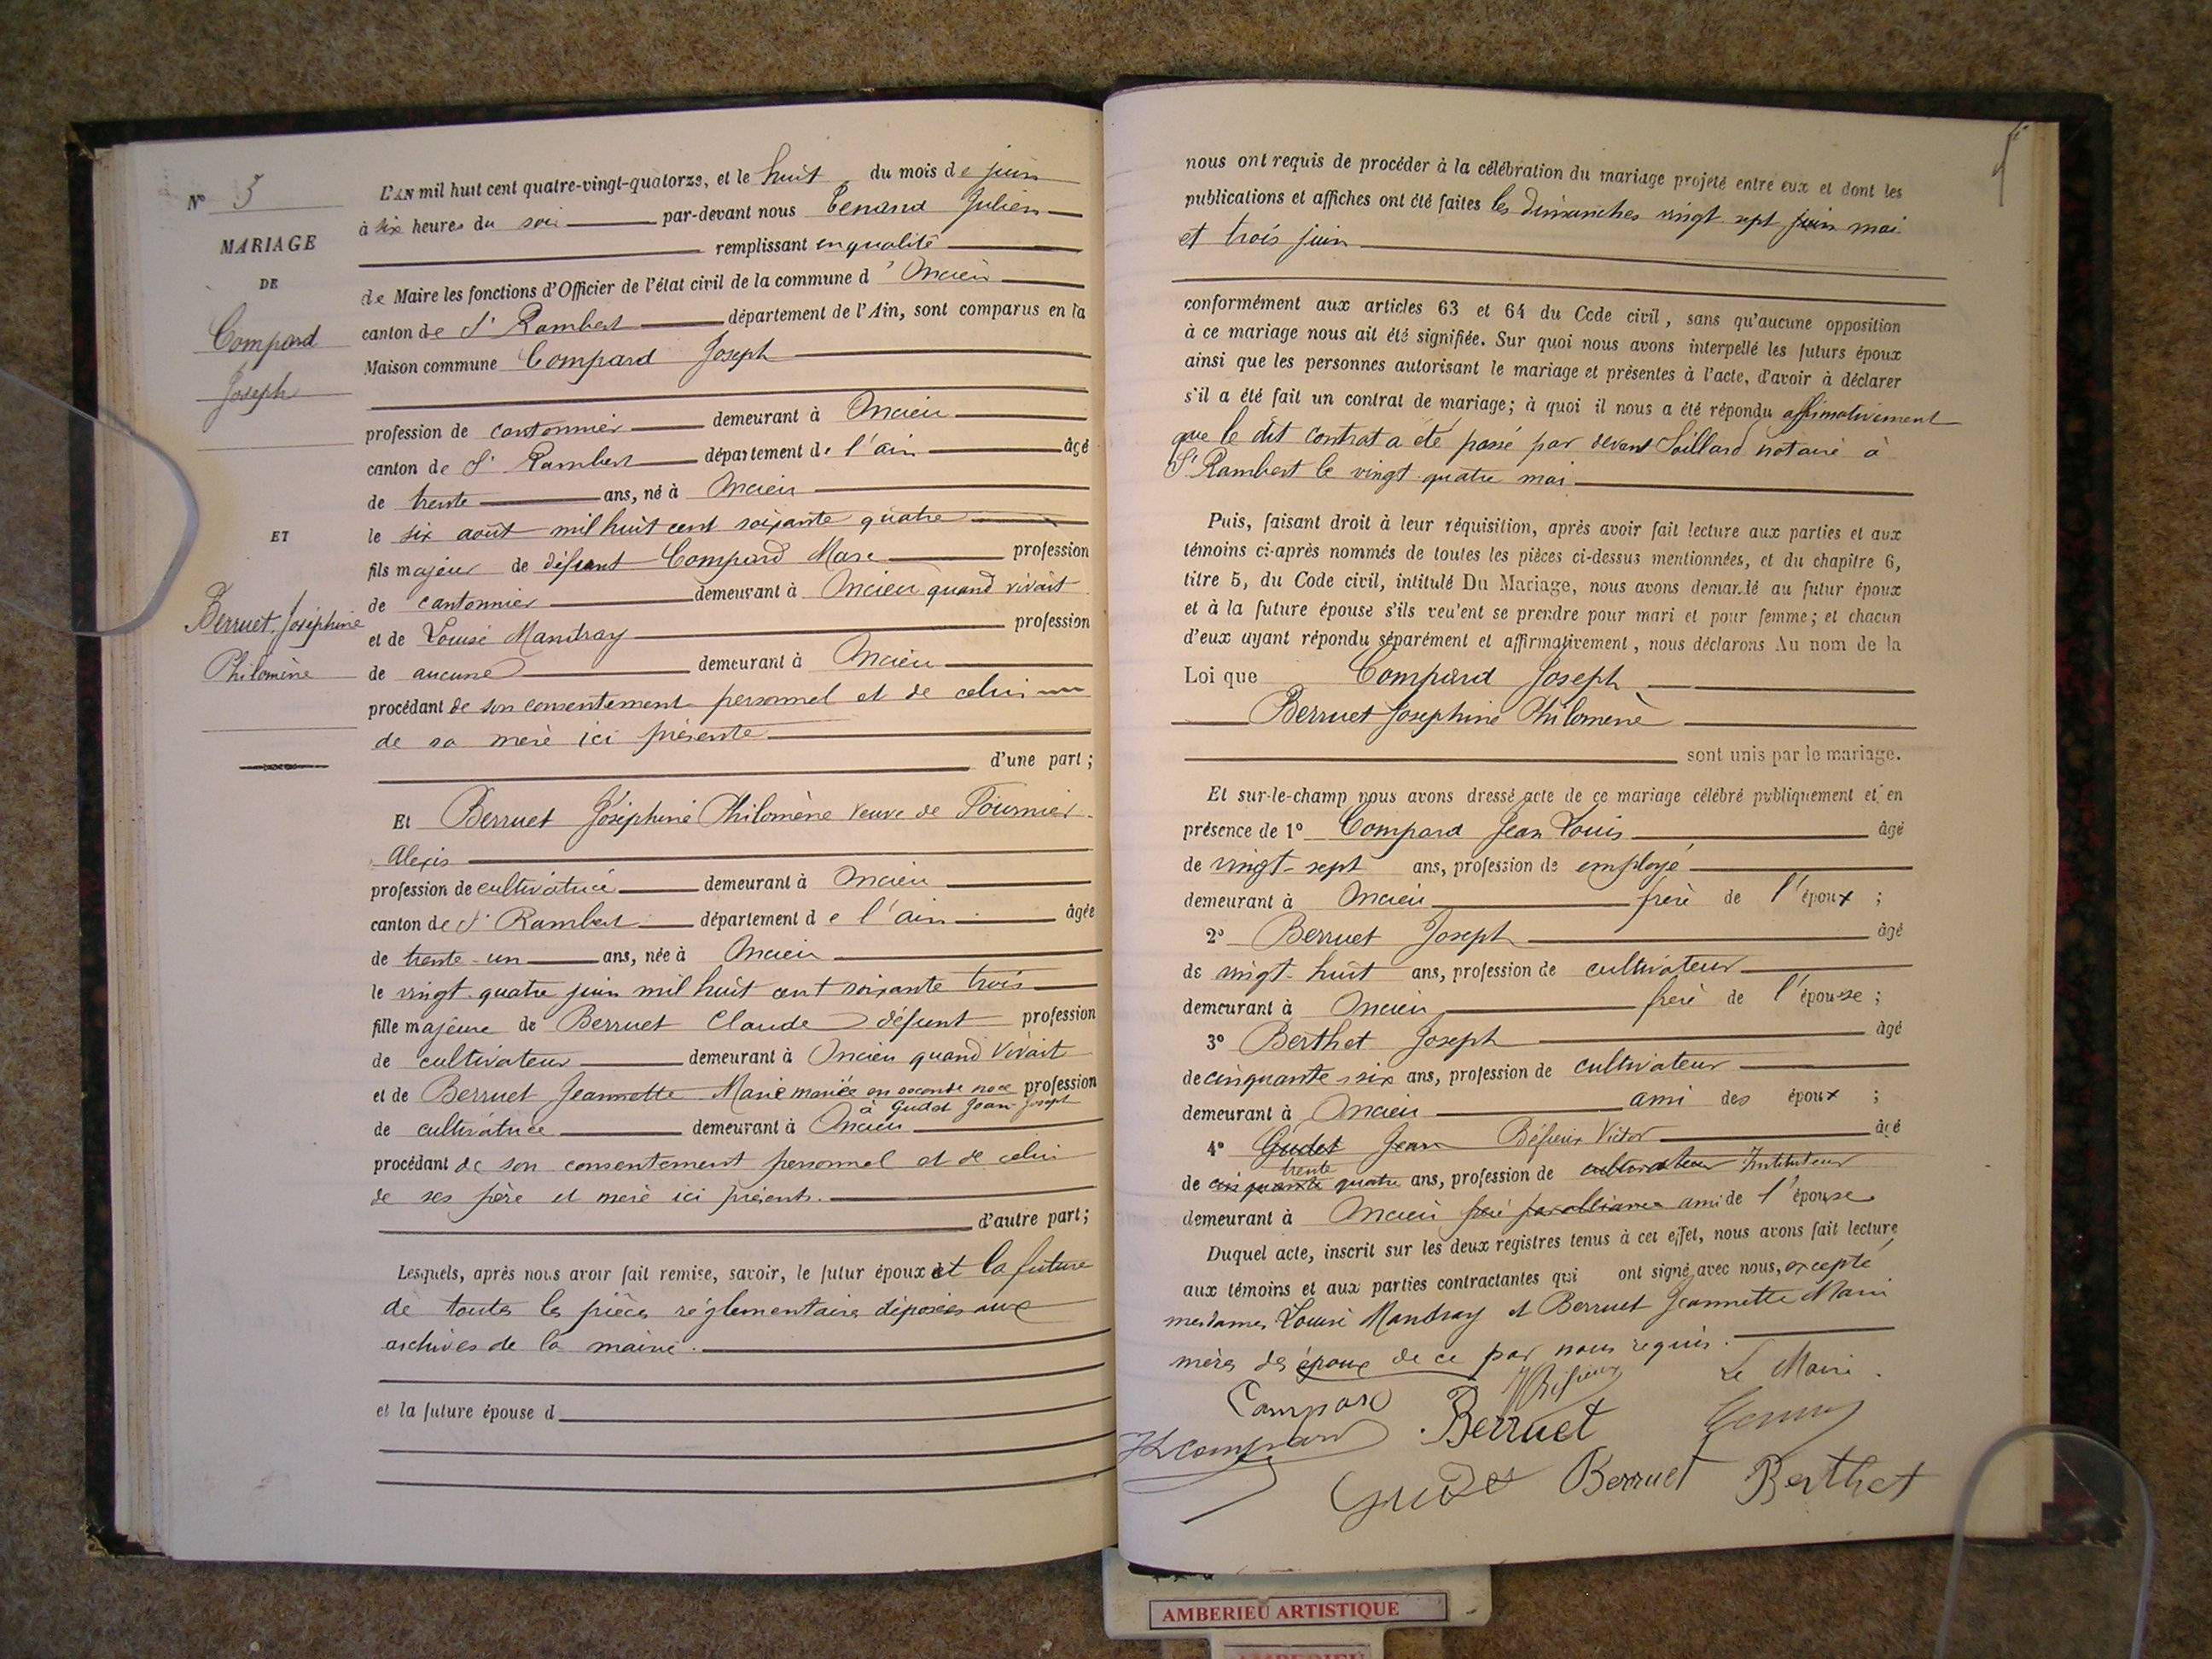 N° 5
MARIAGE
DE
Compard
Joseph
ET
Berruet Joséphine
Philomène
L'AN mil huit cent quatre-vingt-quatorze, et le huit du mois de juin
à six heures du soir par-devant nous Tenand Julien
remplissant en qualité
de Maire les fonctions d'Officier de l'état civil de la commune d'Oncieu
canton de St Rambert département de l'Ain, sont comparus en la
Maison commune Compard Joseph
profession de cantonnier demeurant à Oncieu
canton de St Rambert département de l'ain âgé
de trente ans, né à Oncieu
le six août mil huit cent soixante quatre
fils majeur de défunt Compard Marc profession
de cantonnier demeurant à Oncieu quand vivait
et de Louise Mandray profession
de aucune demeurant à Oncieu
procédant de son consentement personnel et de celui
de sa mère ici présente
d'une part;
Et Berruet Joséphine Philomène veuve de Fournier
Alexis
profession de cultivatrice demeurant à Oncieu
canton de St Rambert département de l'ain âgée
de trente-un ans, née à Oncieu
le vingt-quatre juin mil huit cent soixante trois
fille majeure de Berruet Claude défunt profession
de cultivateur demeurant à Oncieu quand vivait
et de Berruet Jeannette Marie mariée en seconde noce profession
à Gudet Jean-Joseph
de cultivatrice demeurant à Oncieu
procédant de son consentement personnel et de celui
de ses père et mère ici présents.
d'autre part;
Lesquels, après nous avoir fait remise, savoir, le futur époux et la future
de toutes les pièces réglementaires déposées aux
archives de la mairie.
et la future épouse d
nous ont requis de procéder à la célébration du mariage projeté entre eux et dont les
publications et affiches ont été faites les dimanches vingt sept juin mai
et trois juin
conformément aux articles 63 et 64 du Code civil, sans qu'aucune opposition
à ce mariage nous ait été signifiée. Sur quoi nous avons interpellé les futurs époux
ainsi que les personnes autorisant le mariage et présentes à l'acte, d'avoir à déclarer
s'il a été fait un contrat de mariage; à quoi il nous a été répondu affirmativement
que le dit contrat a été passé par devant notaire à
St Rambert le vingt-quatre mai
Puis, faisant droit à leur réquisition, après avoir fait lecture aux parties et aux
témoins ci-après nommés de toutes les pièces ci-dessus mentionnées, et du chapitre 6,
titre 5, du Code civil, intitulé Du Mariage, nous avons demandé au futur époux
et à la future épouse s'ils veulent se prendre pour mari et pour femme; et chacun
d'eux ayant répondu séparément et affirmativement, nous déclarons Au nom de la
Loi que Compard Joseph
Berruet Josephine Philomène
sont unis par le mariage.
Et sur-le-champ nous avons dressé acte de ce mariage célébré publiquement et en
présence de 1° Compard Jean Louis âgé
de vingt-sept ans, profession de employé
demeurant à Oncieu frère de l'époux;
2° Berruet Joseph âgé
de vingt-huit ans, profession de cultivateur
demeurant à Oncieu frère de l'épouse;
3° Berthet Joseph âgé
de cinquante six ans, profession de cultivateur
demeurant à Oncieu ami des époux;
4° Gudet Jean Victor âgé
trente
de cinquante quatre ans, profession de cultivateur Instituteur
demeurant à Oncieu frère par alliance ami de l'épouse
Duquel acte, inscrit sur les deux registres tenus à cet effet, nous avons fait lecture
aux témoins et aux parties contractantes qui ont signé avec nous, excepté
mesdames Louise Mandray et Berruet Jeannette Marie
mères des époux de ce par nous requis.
Le Maire.
Compard
Berruet
JLCompard
Gudet Berruet Berthet
AMBERIEU ARTISTIQUE
AMBERIEU